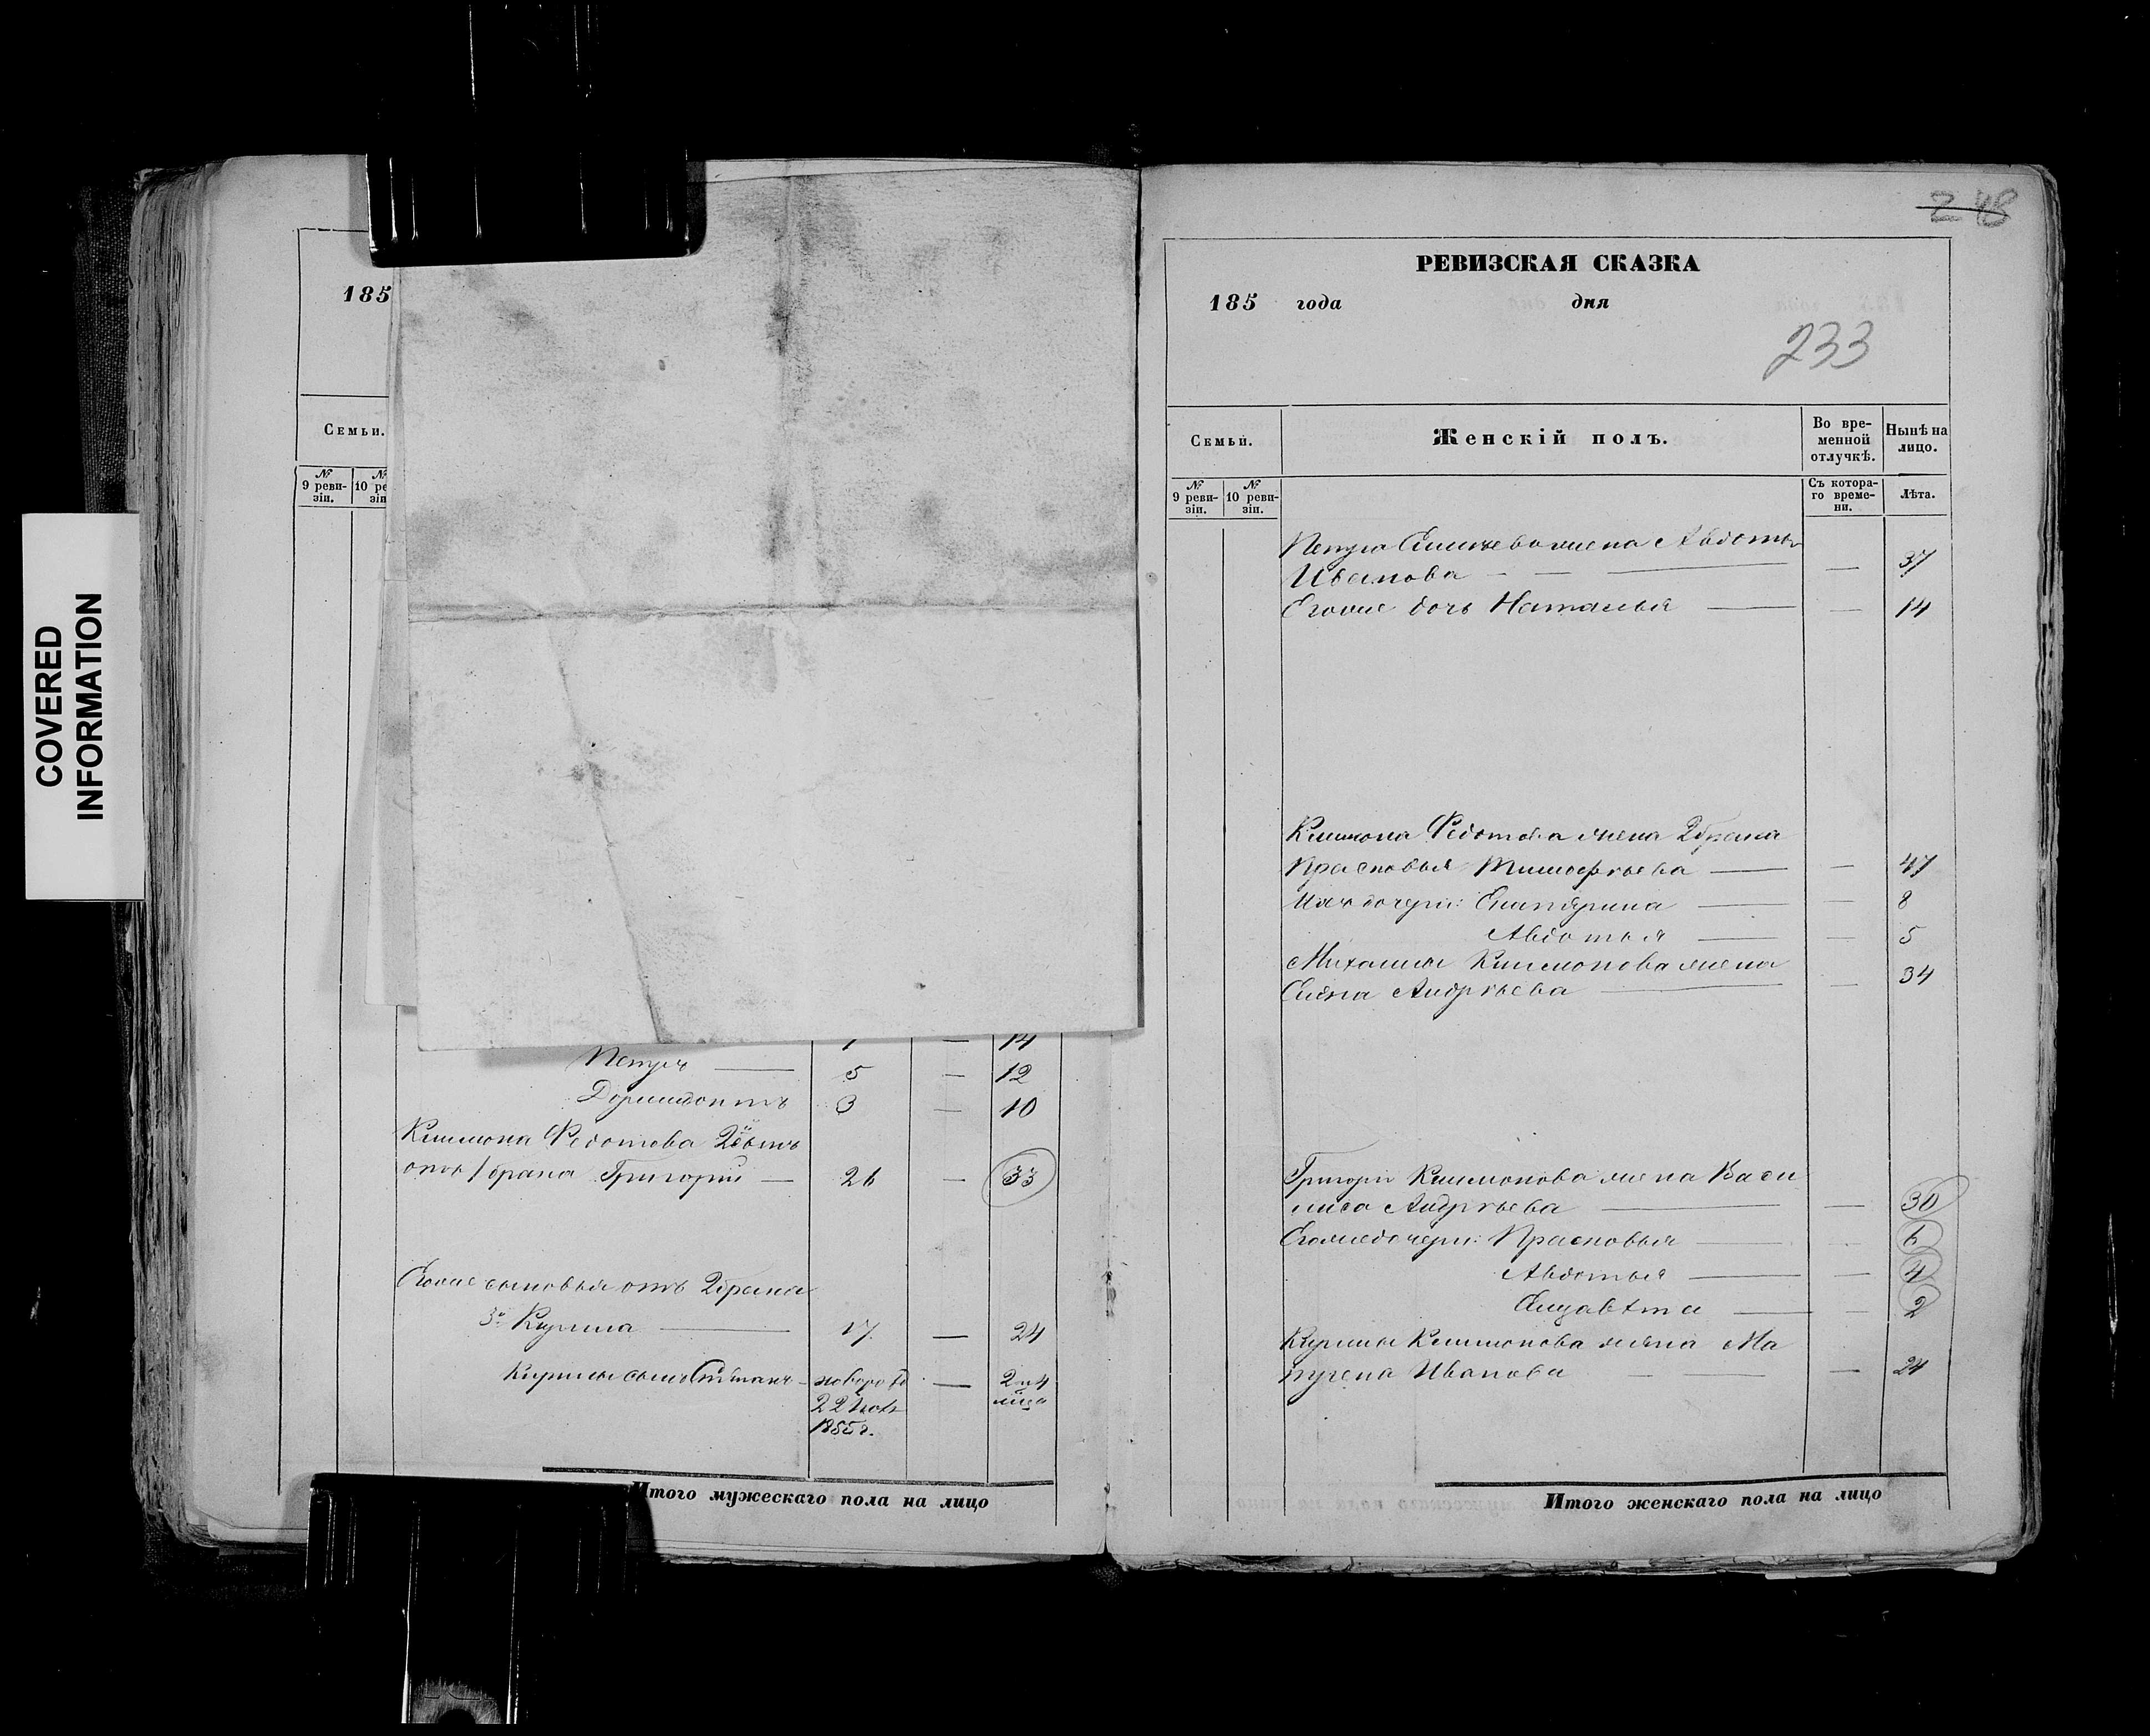 COVERED
INFORMATION
185
Семьи.
№
9 реви-
зіи.
№
10 ре
зіи
14
Петръ — 5 — 12
Доримедонтъ 3 — 10
Климона Федотова
отъ 1 брака Григорій — 26 — 33
Егоже сыновья отъ 2 брака
3й Кирила — 17 — 24
Кирилы сынъ Степанъ новорожд — 2 и 4
22
1855 г.
Итого мужескаго пола на лицо
248
РЕВИЗСКАЯ СКАЗКА
185 года дня
233
Семьи.
Женскій полъ.
Во вре-
менной
отлучкѣ.
Нынѣ на
лицо.
№
9 реви-
зіи.
№
10 реви-
зіи.
Съ котора-
го време-
ни.
Лѣта.
Петра жена Авдотья
Иванова — — 37
Егоже дочь Наталья — — 14
Климона Федотова жена 2 брака
Прасковья Тимофѣева — — 47
Ихъ дочери: Екатерина — — 8
Авдотья — — 5
Михаилы Климонова жена
Елена Андрѣева — — 34
Григорія Климонова жена Васи
лиса Андрѣева — — 30
Егоже дочери: Прасковья — 6
Авдотья — — 4
Елизавѣта — — 2
Кирилы Климонова жена Ма
трена Иванова — — 24
Итого женскаго пола на лицо